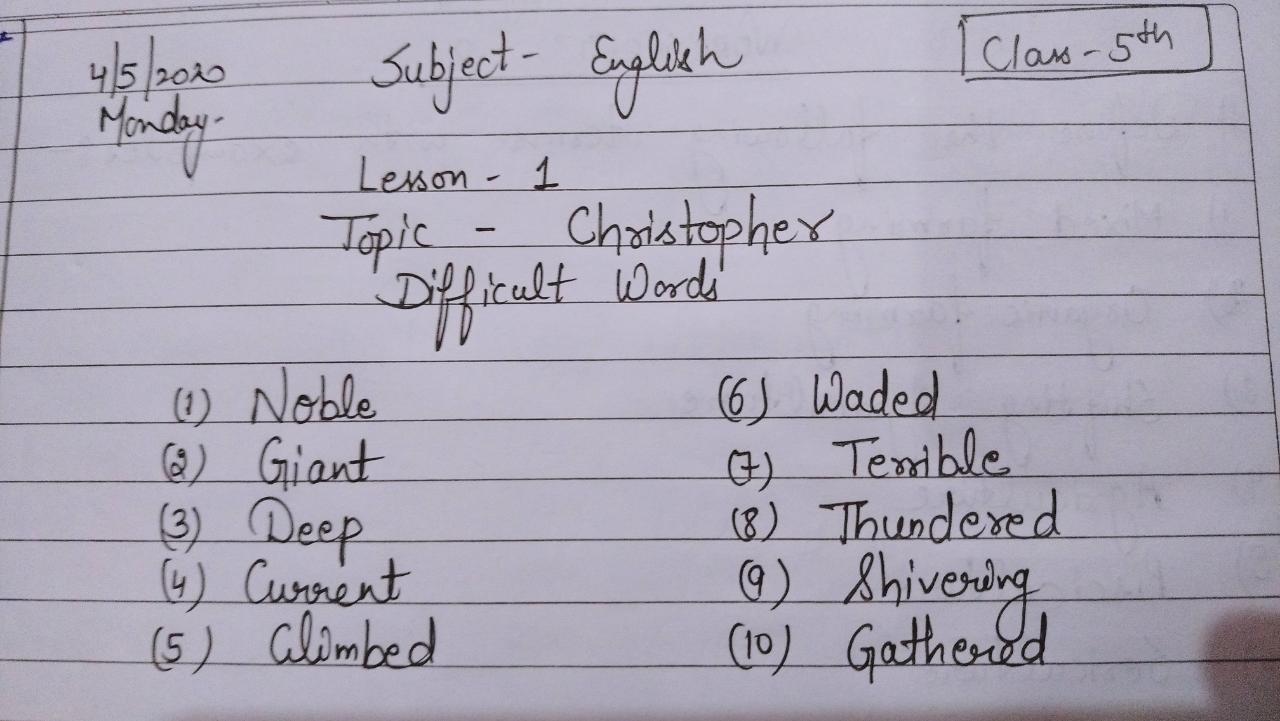 4/5/2020 Subject - English Class - 5th
Monday -
Lesson - 1
Topic - Christopher
Difficult Words
(1) Noble (6) Waded
(2) Giant (7) Terrible
(3) Deep (8) Thundered
(4) Current (9) Shivering
(5) Climbed (10) Gathered